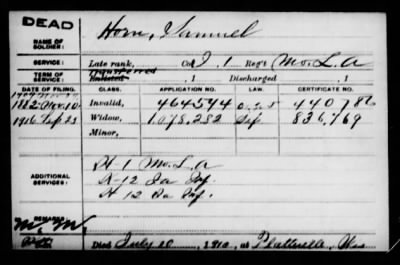 DEAD
NAME OF SOLDIER: Horn, Samuel
SERVICE: Late rank, Co. I, 1 Reg't Mo. L. A
TERM OF SERVICE: Transferred Enlisted , 1 Discharged , 1
DATE OF FILING. CLASS. APPLICATION NO. LAW. CERTIFICATE NO.
1882 Nov. 10 Invalid, 464544 440786
1916 Sep 23 Widow, 1078,282 Sep. 836,769
Minor,
ADDITIONAL SERVICES:
H-1 Mo. L. A
A-12 Ia Inf.
H 12 Ia Inf.
REMARKS:
M. M.
Died July 20, 1910, at Platteville, Wis